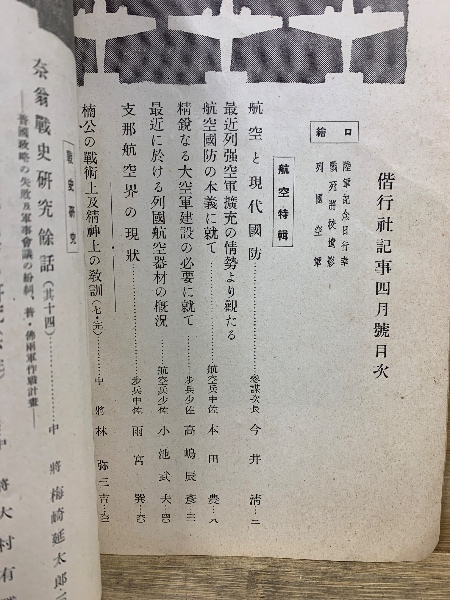 偕行社記事四月號目次
口繪
陸軍記念日行幸
戰死將校撮影
列國空軍
航空特輯
航空と現代國防……參謀次長 今井清…三
最近列强空軍擴充の情勢より觀たる
航空國防の本義に就て……航空兵中佐 本田農…八
精銳なる大空軍建設の必要に就て……步兵少佐 高嶋辰彥…
最近に於ける列國航空器材の概況……航空兵少佐 小池武夫…
支那航空界の現狀……步兵中佐 雨宮巽…
戰史硏究
楠公の戰術上及精神上の敎訓(七・完)……中將 林弥三吉…
奈翁戰史硏究餘話(其十四)……中將 梅崎延太郞
――普國政略の失敗及軍事會議の紛糾、普・佛兩軍作戰計畫――
中將 大村有